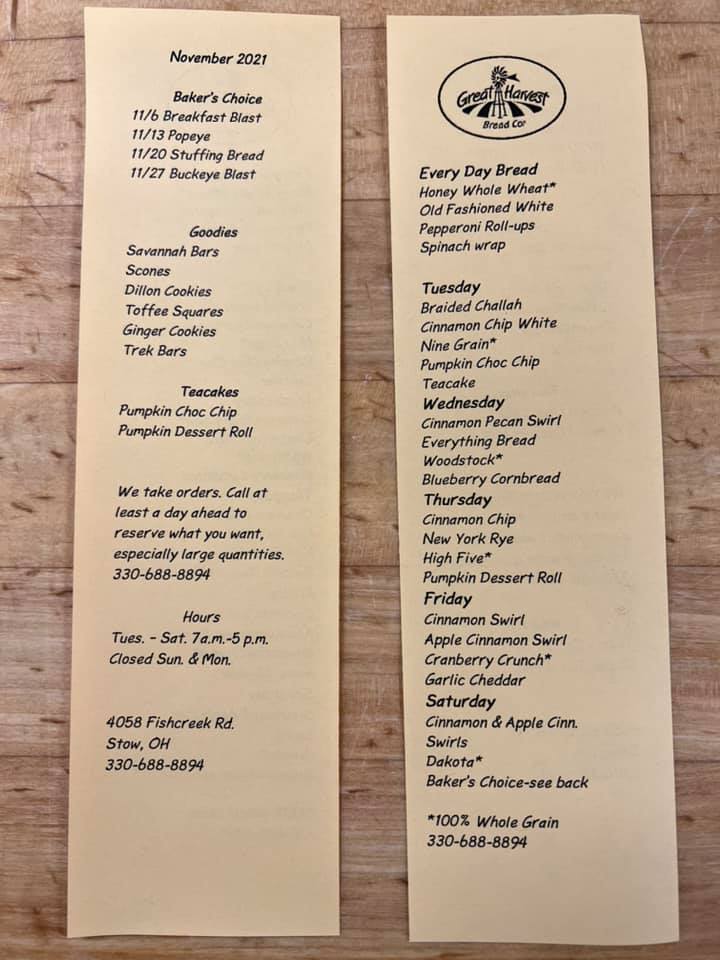 November 2021
Baker's Choice
11/6 Breakfast Blast
11/13 Popeye
11/20 Stuffing Bread
11/27 Buckeye Blast
Goodies
Savannah Bars
Scones
Dillon Cookies
Toffee Squares
Ginger Cookies
Trek Bars
Teacakes
Pumpkin Choc Chip
Pumpkin Dessert Roll
We take orders. Call at
least a day ahead to
reserve what you want,
especially large quantities.
330-688-8894
Hours
Tues. - Sat. 7a.m.-5 p.m.
Closed Sun. & Mon.
4058 Fishcreek Rd.
Stow, OH
330-688-8894
Great Harvest
Bread Co.
Every Day Bread
Honey Whole Wheat*
Old Fashioned White
Pepperoni Roll-ups
Spinach wrap
Tuesday
Braided Challah
Cinnamon Chip White
Nine Grain*
Pumpkin Choc Chip
Teacake
Wednesday
Cinnamon Pecan Swirl
Everything Bread
Woodstock*
Blueberry Cornbread
Thursday
Cinnamon Chip
New York Rye
High Five*
Pumpkin Dessert Roll
Friday
Cinnamon Swirl
Apple Cinnamon Swirl
Cranberry Crunch*
Garlic Cheddar
Saturday
Cinnamon & Apple Cinn.
Swirls
Dakota*
Baker's Choice-see back
*100% Whole Grain
330-688-8894